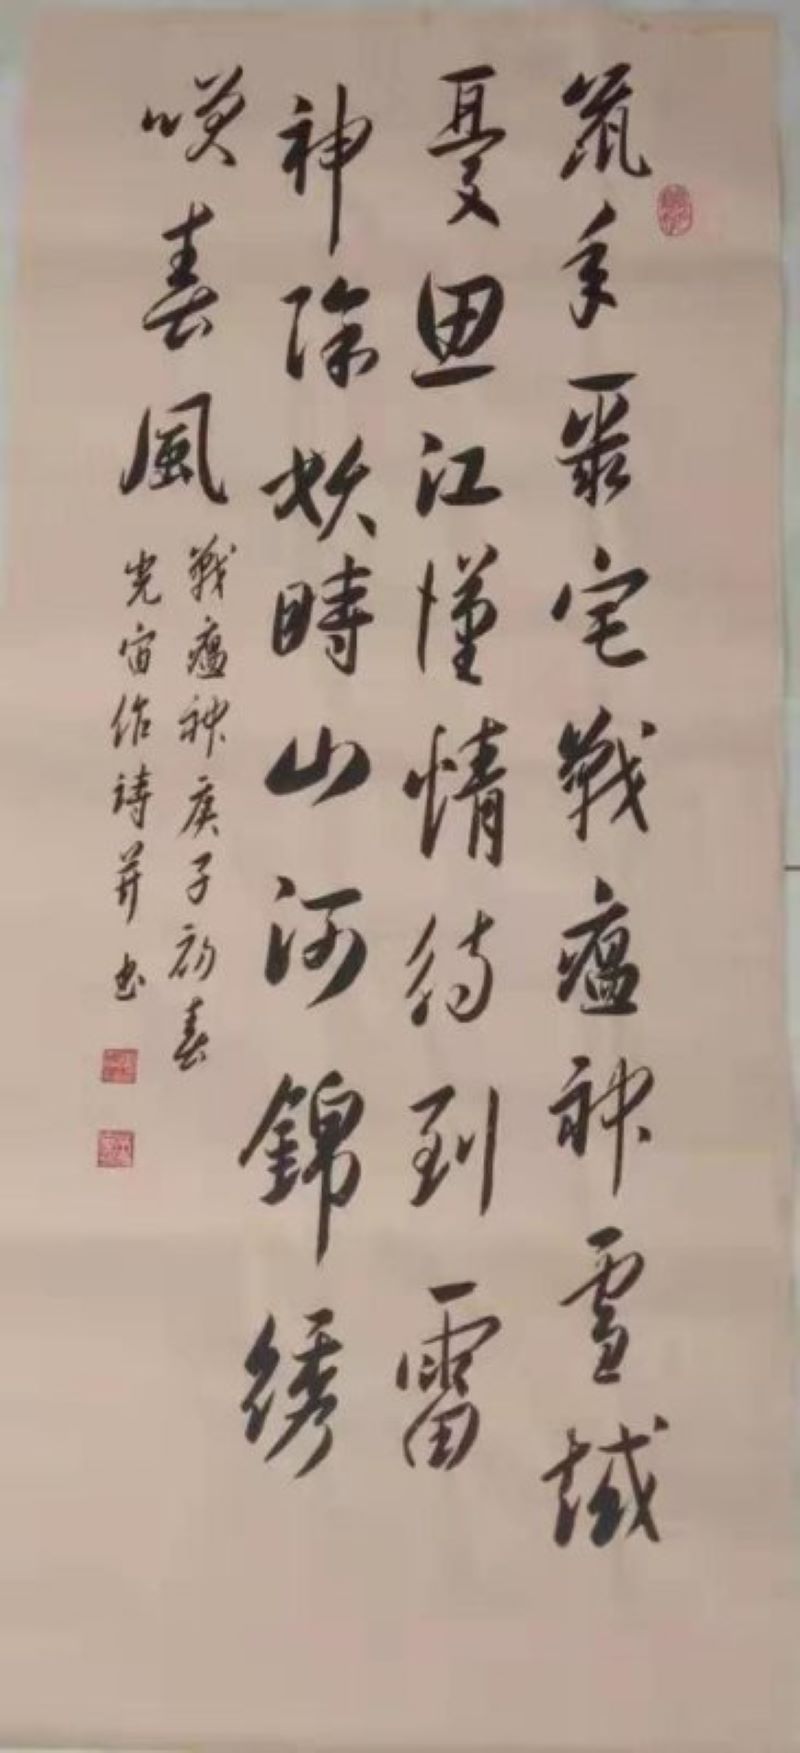 鼠年最宅戰瘟神雪域
憂思江漢情待到雷
神除妖時山河錦綉
咲春風
戰瘟神庚子初春
光宙作詩并书